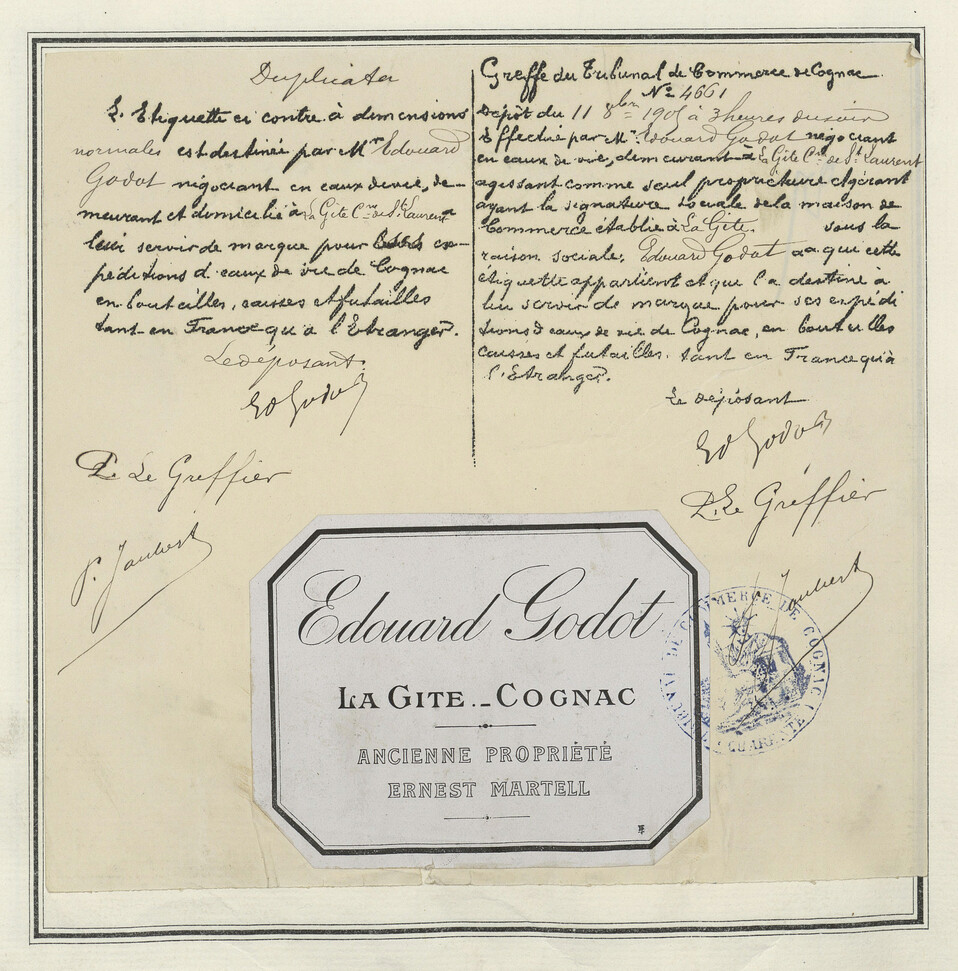 Duplicata
L'Etiquette ci contre à dimensions
normales est destinée par Mr Edouard
Godot négociant en eaux de vie, de-
meurant et domicilié à La Gite Cne de St Laurent à
leur servir de marque pour ses ex-
péditions d'eaux de vie de Cognac
en bouteilles, caisses et futailles
tant en France qu'à l'Etranger.
Le déposant.
Ed Godot
P. Le Greffier
P. Jaubert
Greffe du Tribunal de Commerce de Cognac
No 4661
Dépôt du 11 8bre 190 à 3 heures du soir
Effectué par Mr Edouard Godot négociant
en eaux de vie, demeurant à La Gite Cne de St Laurent
agissant comme seul propriétaire et gérant
ayant la signature sociale de la maison de
Commerce établie à La Gite. sous la
raison sociale: Edouard Godot à qui cette
étiquette appartient et qui l'a destiné à
lui servir de marque pour ses expédi
tions d'eaux de vie de Cognac, en bouteilles
caisses et futailles. tant en France qu'à
l'Etranger.
Le déposant
Ed Godot
P. Le Greffier
Jaubert
Edouard Godot
LA GITE.-COGNAC
ANCIENNE PROPRIÉTÉ
ERNEST MARTELL
TRIBUNAL DE COMMERCE DE COGNAC (CHARENTE)